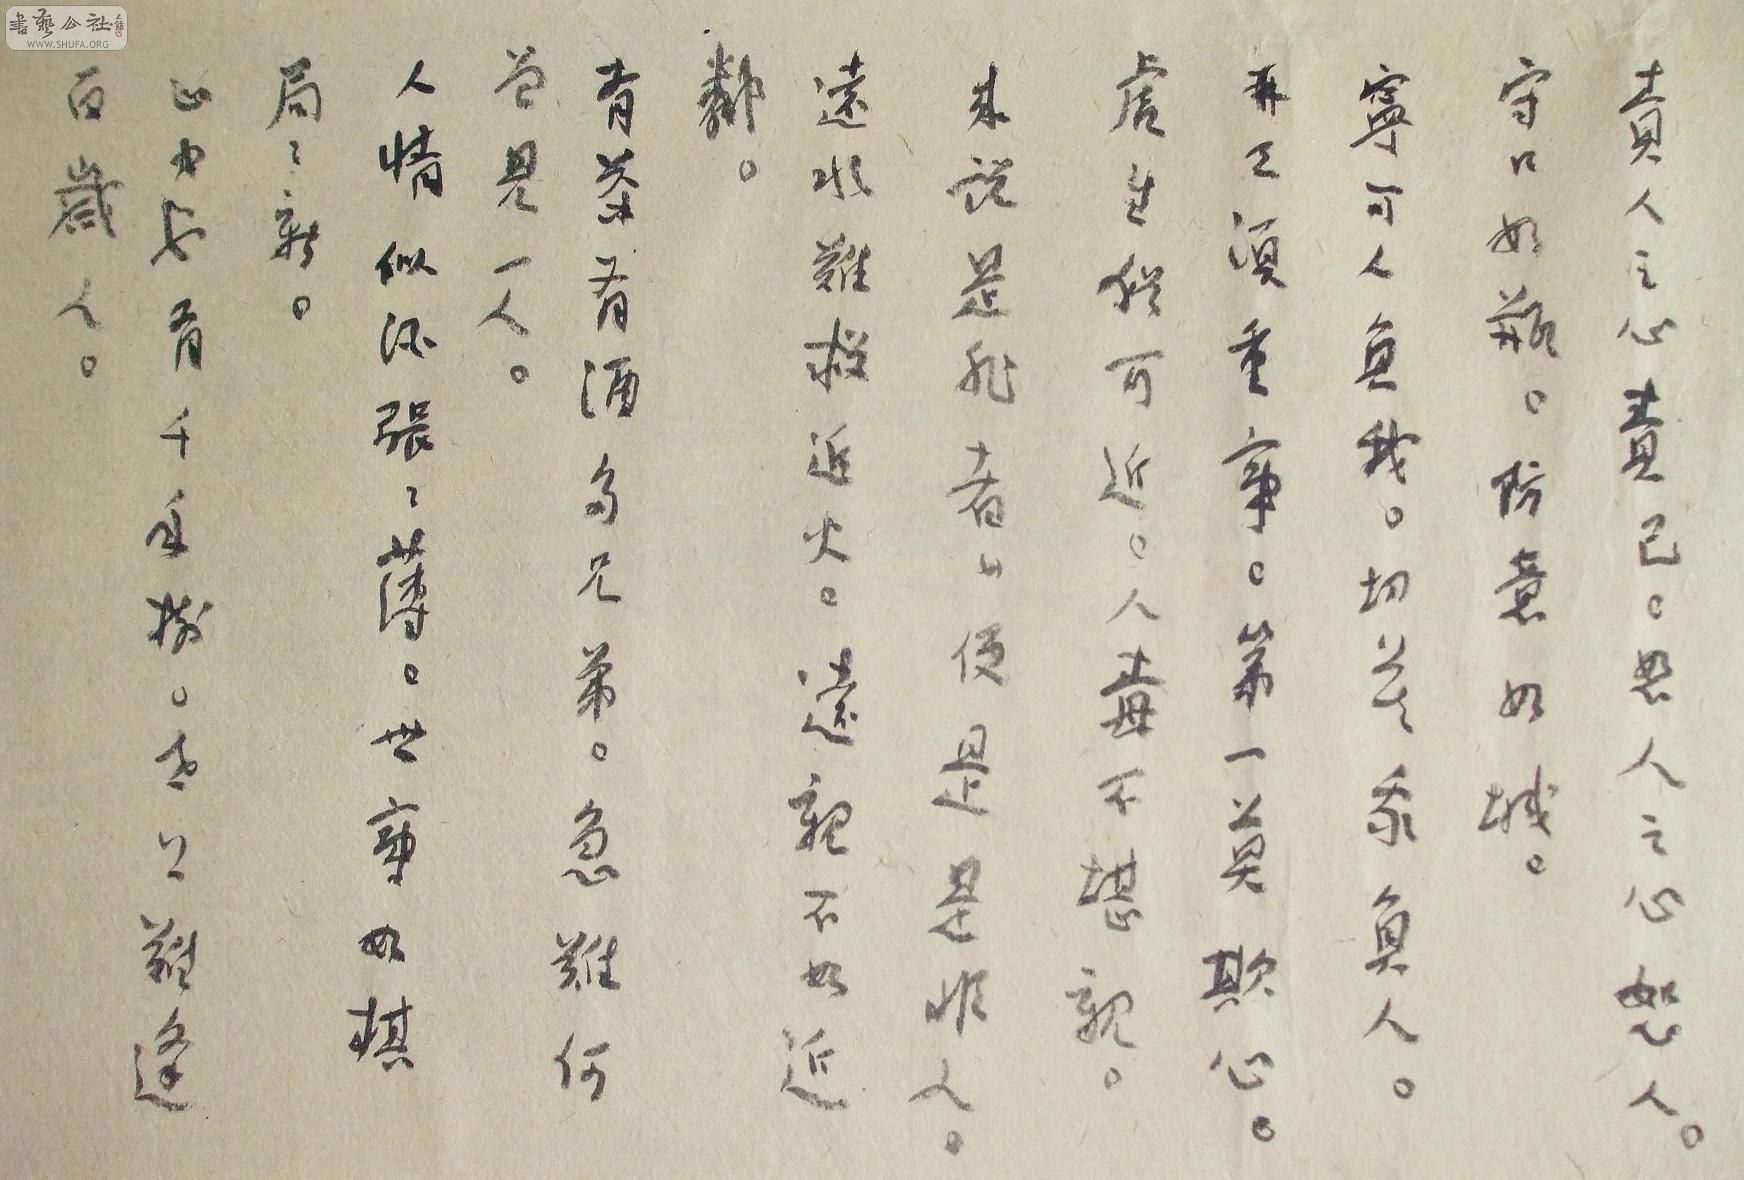 責人之心責己。恕人之心恕人。
守口如瓶。防意如城。
寧可人負我。切莫我負人。
再三須重事。第一莫欺心。
虎生猶可近。人毒不堪親。
來說是非者。便是是非人。
遠水難救近火。遠親不如近
鄰。
有茶有酒多兄弟。急難何
曾見一人。
人情似紙張〻薄。世事如棋
局〻新。
山中也有千年樹。世上難逢
百歲人。
書藝公社
WWW.SHUFA.ORG